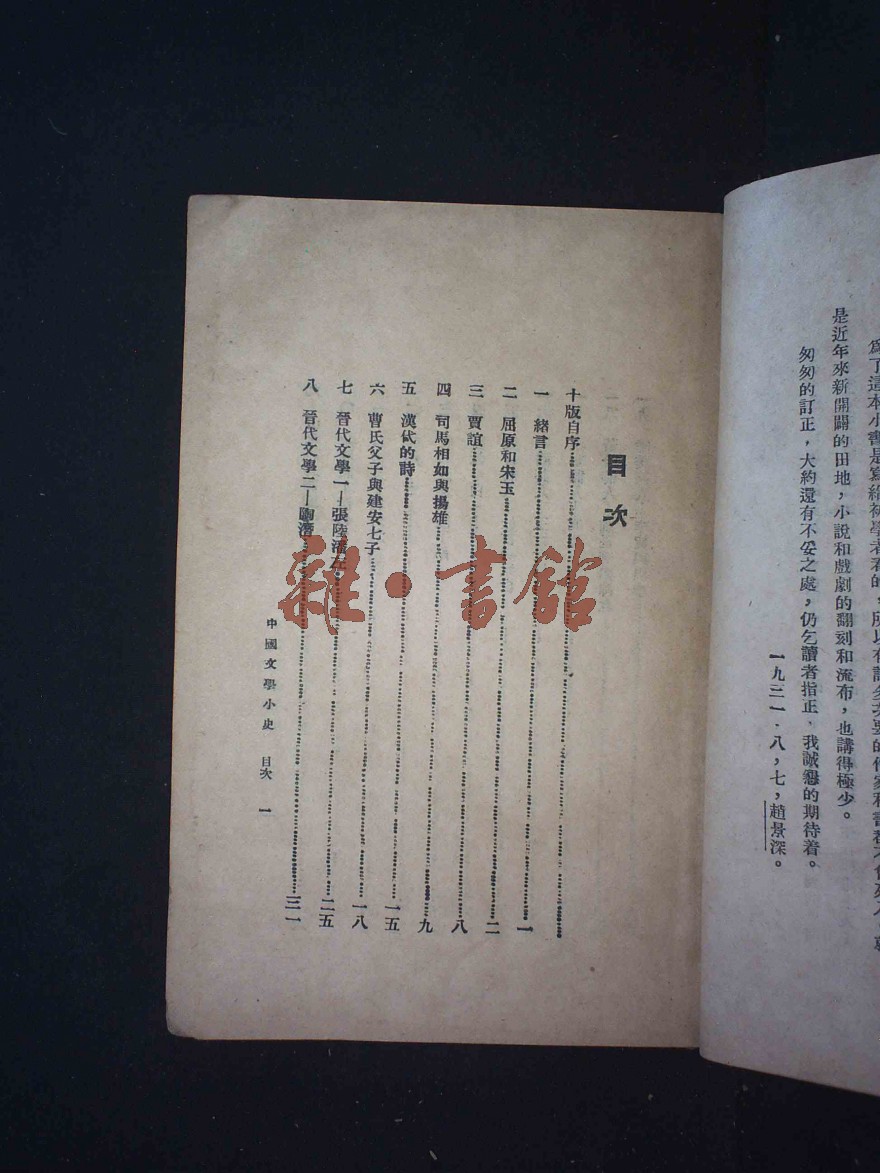 爲了這本小書是寫給初學者看的，所以有許多不
要的作家和書都不曾列入，就
是近年來新開闢的田地，小說和戲劇的翻刻和流布，也講得極少。
匆匆的訂正，大約還有不妥之處，仍乞讀者指正，我誠懇的期待着。
一九三一．八，七，趙景深。
目次
十版自序
一 緒言 一
二 屈原和宋玉 二
三 賈誼 八
四 司馬相如與揚雄 九
五 漢代的詩 一五
六 曹氏父子與建安七子 一八
七 晉代文學一—張陸潘左 二五
八 晉代文學二—陶潛 三一
中國文學小史 目次 一
雜·書館